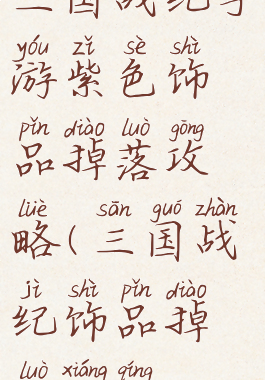 三国战纪手
yóu zǐ sè shì
游紫色饰
pǐn diào luò gōng
品掉落攻
lüè sān guó zhàn
略(三国战
jì shì pǐn diào
纪饰品掉
luò xiáng qíng